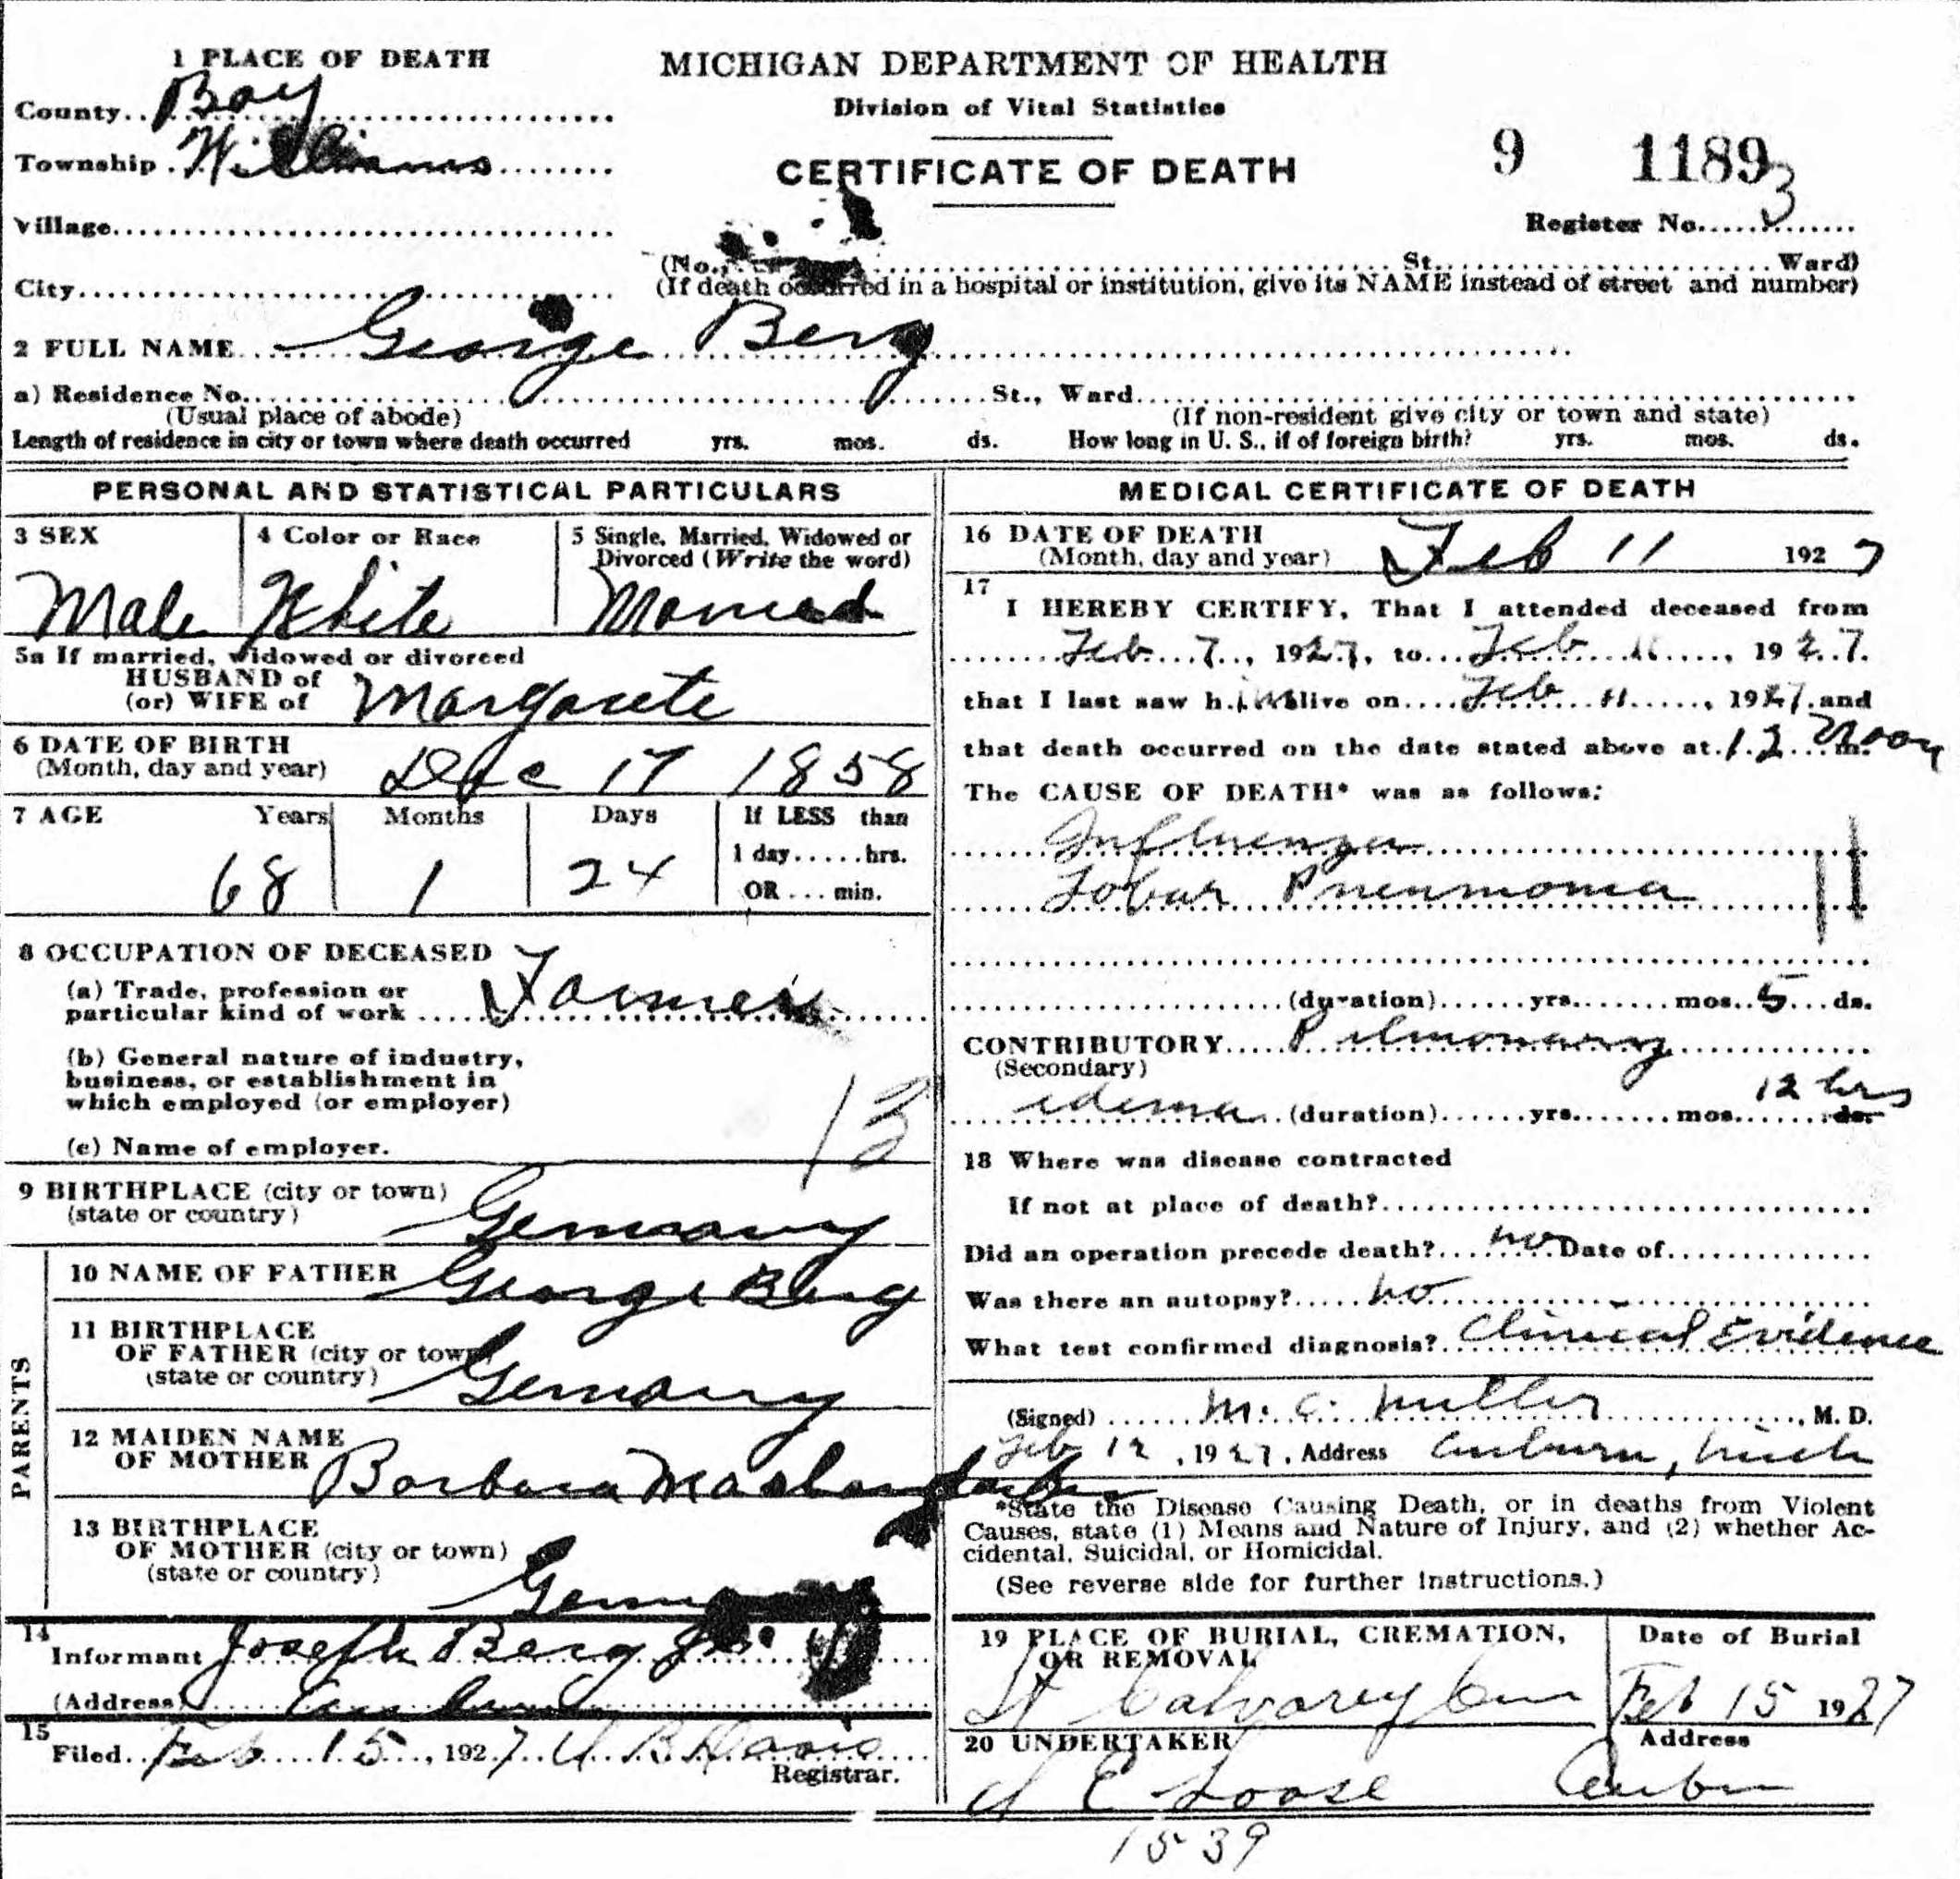 1 PLACE OF DEATH
County Bay
Township Williams
Village
City
MICHIGAN DEPARTMENT OF HEALTH
Division of Vital Statistics
CERTIFICATE OF DEATH
9 1189
Register No. 3
(No. St. Ward)
(If death occurred in a hospital or institution, give its NAME instead of street and number)
2 FULL NAME George Berg
a) Residence No. St., Ward
(Usual place of abode) (If non-resident give city or town and state)
Length of residence in city or town where death occurred yrs. mos. ds. How long in U. S., if of foreign birth? yrs. mos. ds.
PERSONAL AND STATISTICAL PARTICULARS
3 SEX
Male
4 Color or Race
White
5 Single, Married, Widowed or
Divorced (Write the word)
Married
5a If married, widowed or divorced
HUSBAND of
(or) WIFE of Margarete
6 DATE OF BIRTH
(Month, day and year) Dec 17 1858
7 AGE Years Months Days If LESS than
1 day......hrs.
68 1 24
OR ... min.
8 OCCUPATION OF DECEASED
(a) Trade, profession or
particular kind of work Farmer
(b) General nature of industry,
business, or establishment in
which employed (or employer)
13
(c) Name of employer.
9 BIRTHPLACE (city or town)
(state or country) Germany
PARENTS
10 NAME OF FATHER George Berg
11 BIRTHPLACE
OF FATHER (city or town)
(state or country) Germany
12 MAIDEN NAME
OF MOTHER Barbara
13 BIRTHPLACE
OF MOTHER (city or town)
(state or country)
14
Informant Joseph Berg Jr.
(Address) Auburn
15
Filed Feb 15, 1927 B Davis
Registrar.
MEDICAL CERTIFICATE OF DEATH
16 DATE OF DEATH
(Month, day and year) Feb 11 1927
17
I HEREBY CERTIFY, That I attended deceased from
Feb 7, 1927, to Feb 11, 1927.
that I last saw him alive on Feb 11, 1927 and
that death occurred on the date stated above at 12 Noon m.
The CAUSE OF DEATH* was as follows:
Influenza
Lobar Pneumonia
11
(duration) yrs. mos. 5 ds.
CONTRIBUTORY Pulmonary
(Secondary)
edema (duration) yrs. mos. 12 hrs ds.
18 Where was disease contracted
If not at place of death?
Did an operation precede death? no Date of
Was there an autopsy? no
What test confirmed diagnosis? Clinical Evidence
(Signed) M. C. Miller, M. D.
Feb 12, 1927, Address Auburn, Mich
*State the Disease Causing Death, or in deaths from Violent
Causes, state (1) Means and Nature of Injury, and (2) whether Ac-
cidental, Suicidal, or Homicidal.
(See reverse side for further instructions.)
19 PLACE OF BURIAL, CREMATION,
OR REMOVAL
St Calvarey Cem
Date of Burial
Feb 15 1927
20 UNDERTAKER
E Loose
Address
Auburn
1539